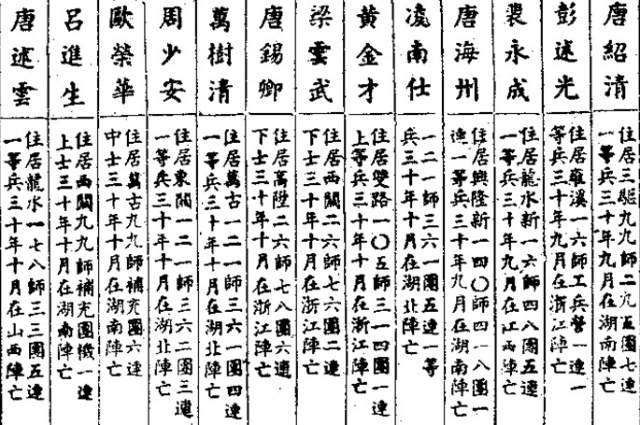 唐紹清
住居三驅九九師二九五團七連
一等兵三十年九月在湖南陣亡
彭述光
住居雍溪一六師工兵營一連一
等兵三十年九月在浙江陣亡
裴永成
住居龍水新一六師四八團五連
一等兵三十年九月在江西陣亡
唐海州
住居興隆新一四〇師四一八團一
連一等兵三十年九月在湖南陣亡
凌南仕
一二一師三六一團五連一等
兵三十年十月在湖北陣亡
黃金才
住居雙路一〇五師三一四團一連
上等兵三十年十月在浙江陣亡
梁雲武
住居西關二六師七六團二連
下士三十年十月在浙江陣亡
唐錫卿
住居高陞二六師七八團六連
下士三十年十月在浙江陣亡
萬樹清
住居萬古一二一師三六一團四連
一等兵三十年十月在湖北陣亡
周少安
住居東關一二一師三六二團三連
一等兵三十年十月在湖北陣亡
歐榮華
住居萬古九九師補充團六連
中士三十年十月在湖南陣亡
呂進生
住居西關九九師補充團機一連
上士三十年十月在湖南陣亡
唐述雲
住居龍水一七八師三三團五連
一等兵三十年十月在山西陣亡